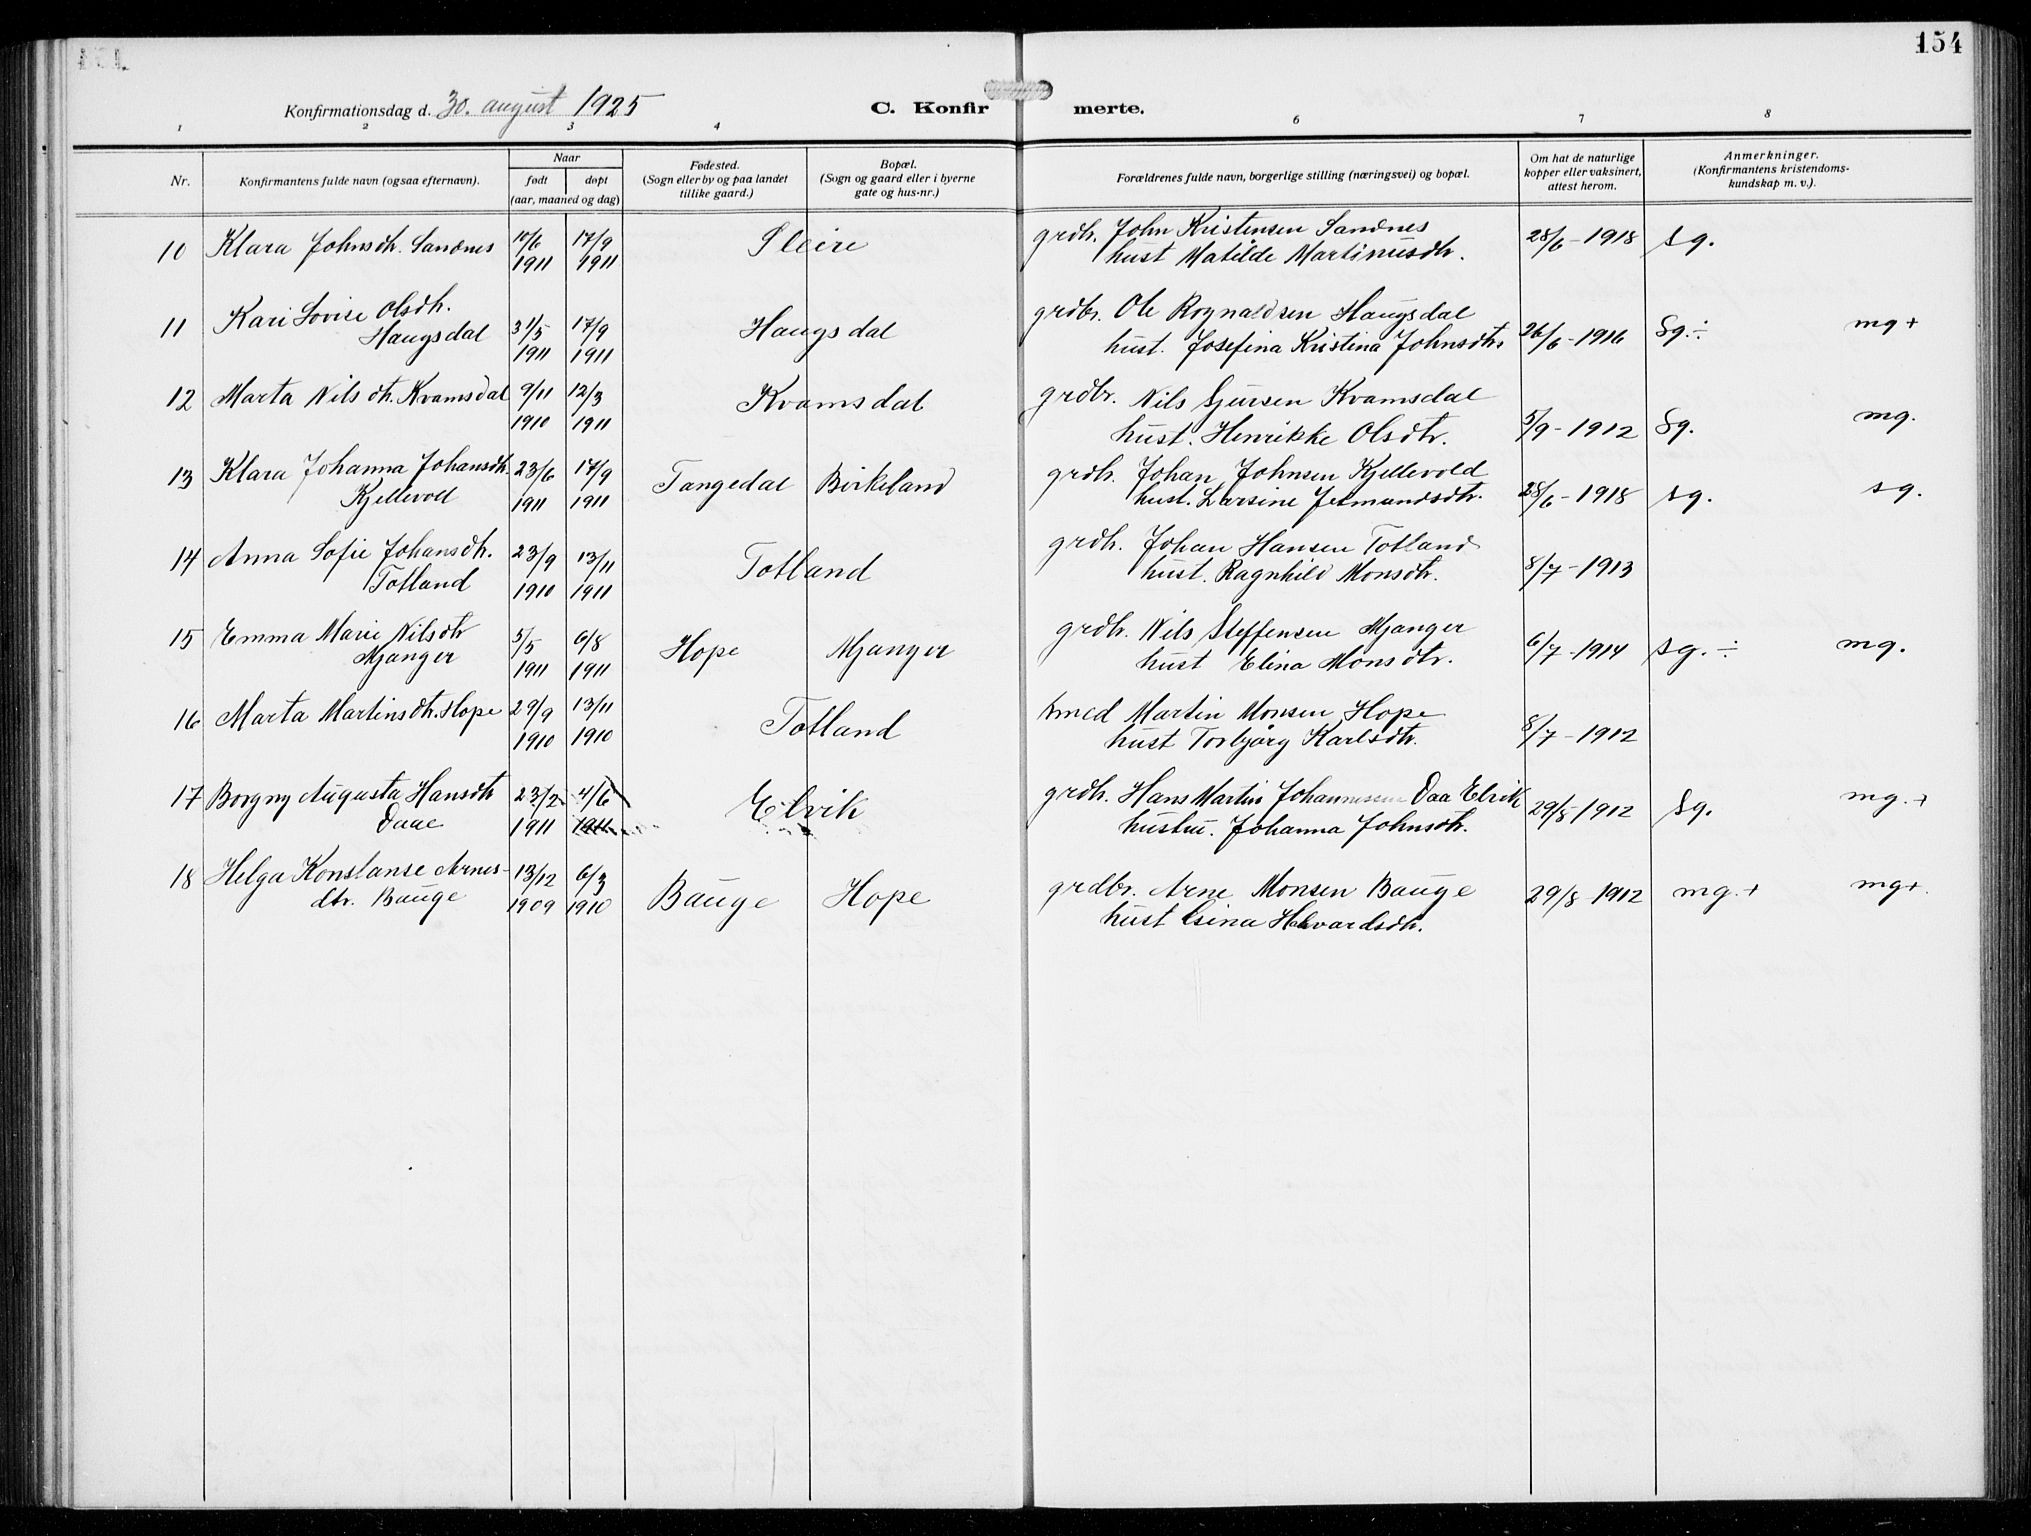 154
Konfirmationsdag d. 30. august 1925
C. Konfir merte.
1 2 3 4 5 6 7 8
Nr.
Konfirmantens fulde navn (ogsaa efternavn).
Naar
født døpt
(aar, maaned og dag)
Fødested.
(Sogn eller by og paa landet
tillike gaard.)
Bopæl.
(Sogn og gaard eller i byerne
gate og hus-nr.)
Forældrenes fulde navn, borgerlige stilling (næringsvei) og bopæl.
Om hat de naturlige
kopper eller vaksinert,
attest herom.
Anmerkninger.
(Konfirmantens kristendoms-
kundskap m. v.).
10 Klara Johnsdtr. Sandnes 10/6 17/9 Sleire grdbr. John Kristensen Sandnes 28/6-1918 sg.
1911 1911 hust Matilde Martinusdtr.
11 Kari Lovise Olsdtr. grdbr. Ole Rognaldsen Haugsdal
Haugsdal 31/5 17/9 Haugsdal hust. Josefina Kristina Johnsdtr. 26/6-1916 Sg.÷ mg+
1911 1911
12 Marta Nilsdtr. Kvamsdal 9/11 12/3 Kvamsdal grdbr. Nils Sjursen Kvamsdal
1910 1911 hust. Henrikke Olsdtr. 5/9-1912 Sg. mg.
13 Klara Johanna Johansdtr. 23/6 17/9 Tangedal Birkeland grdbr. Johan Johnsen Kjellevold
Kjellevold 1911 1911 hust. Larsine Jetmundsdtr. 28/6-1918 sg. sg.
14 Anna Sofie Johansdtr. 23/9 13/11 Totland grdbr. Johan Hansen Totland
Totland 1910 1911 hust. Ragnhild Monsdtr. 8/7-1913
15 Emma Marie Nilsdtr 5/5 6/8 Hope Mjanger grdbr. Nils Steffensen Mjanger 6/7-1914 sg.÷ mg.
Mjanger 1911 1911 hust Elina Monsdtr.
16 Marta Martinsdtr. Hope 29/9 13/11 Totland Martin Monsen Hope
1910 1910 hust Torbjørg Karlsdtr. 8/7-1912
17 Borgny Augusta Hansdtr 23/2 4/6 Elvik grdbr. Hans Martin Johannessen Daa Elvik 29/8-1912 Sg. mg.+
Daae 1911 1911 hustru. Johanna Johnsdtr.
18 Helga Konstanse Arnes- 13/12 6/3 Bauge Hope grdbr. Arne Monsen Bauge 29/8-1912 mg.+ mg+.
dtr. Bauge 1909 1910 hust Halvardsdtr.